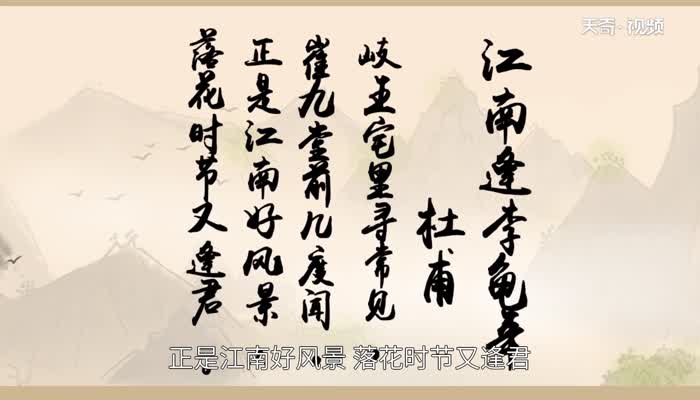 天奇·视频
江南逢李龟年
杜甫
岐王宅里寻常见
崔九堂前几度闻
正是江南好风景
落花时节又逢君
正是江南好风景 落花时节又逢君